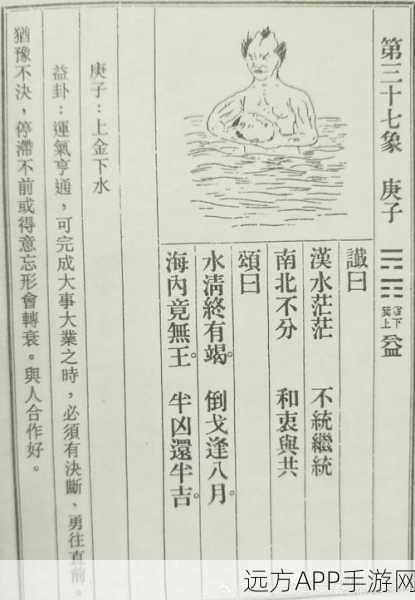 第三十七象 庚子 震下巽上 益
讖曰
漢水茫茫 不統繼統
南北不分 和衷與共
頌曰
水清終有竭。 倒戈逢八月。
海內竟無王。 半凶還半吉。
庚子：上金下水
益卦：運氣亨通，可完成大事大業之時，必須有決斷、勇往直前。
猶豫不決，停滯不前或得意忘形會轉衰。與人合作好。
远方APP手游网